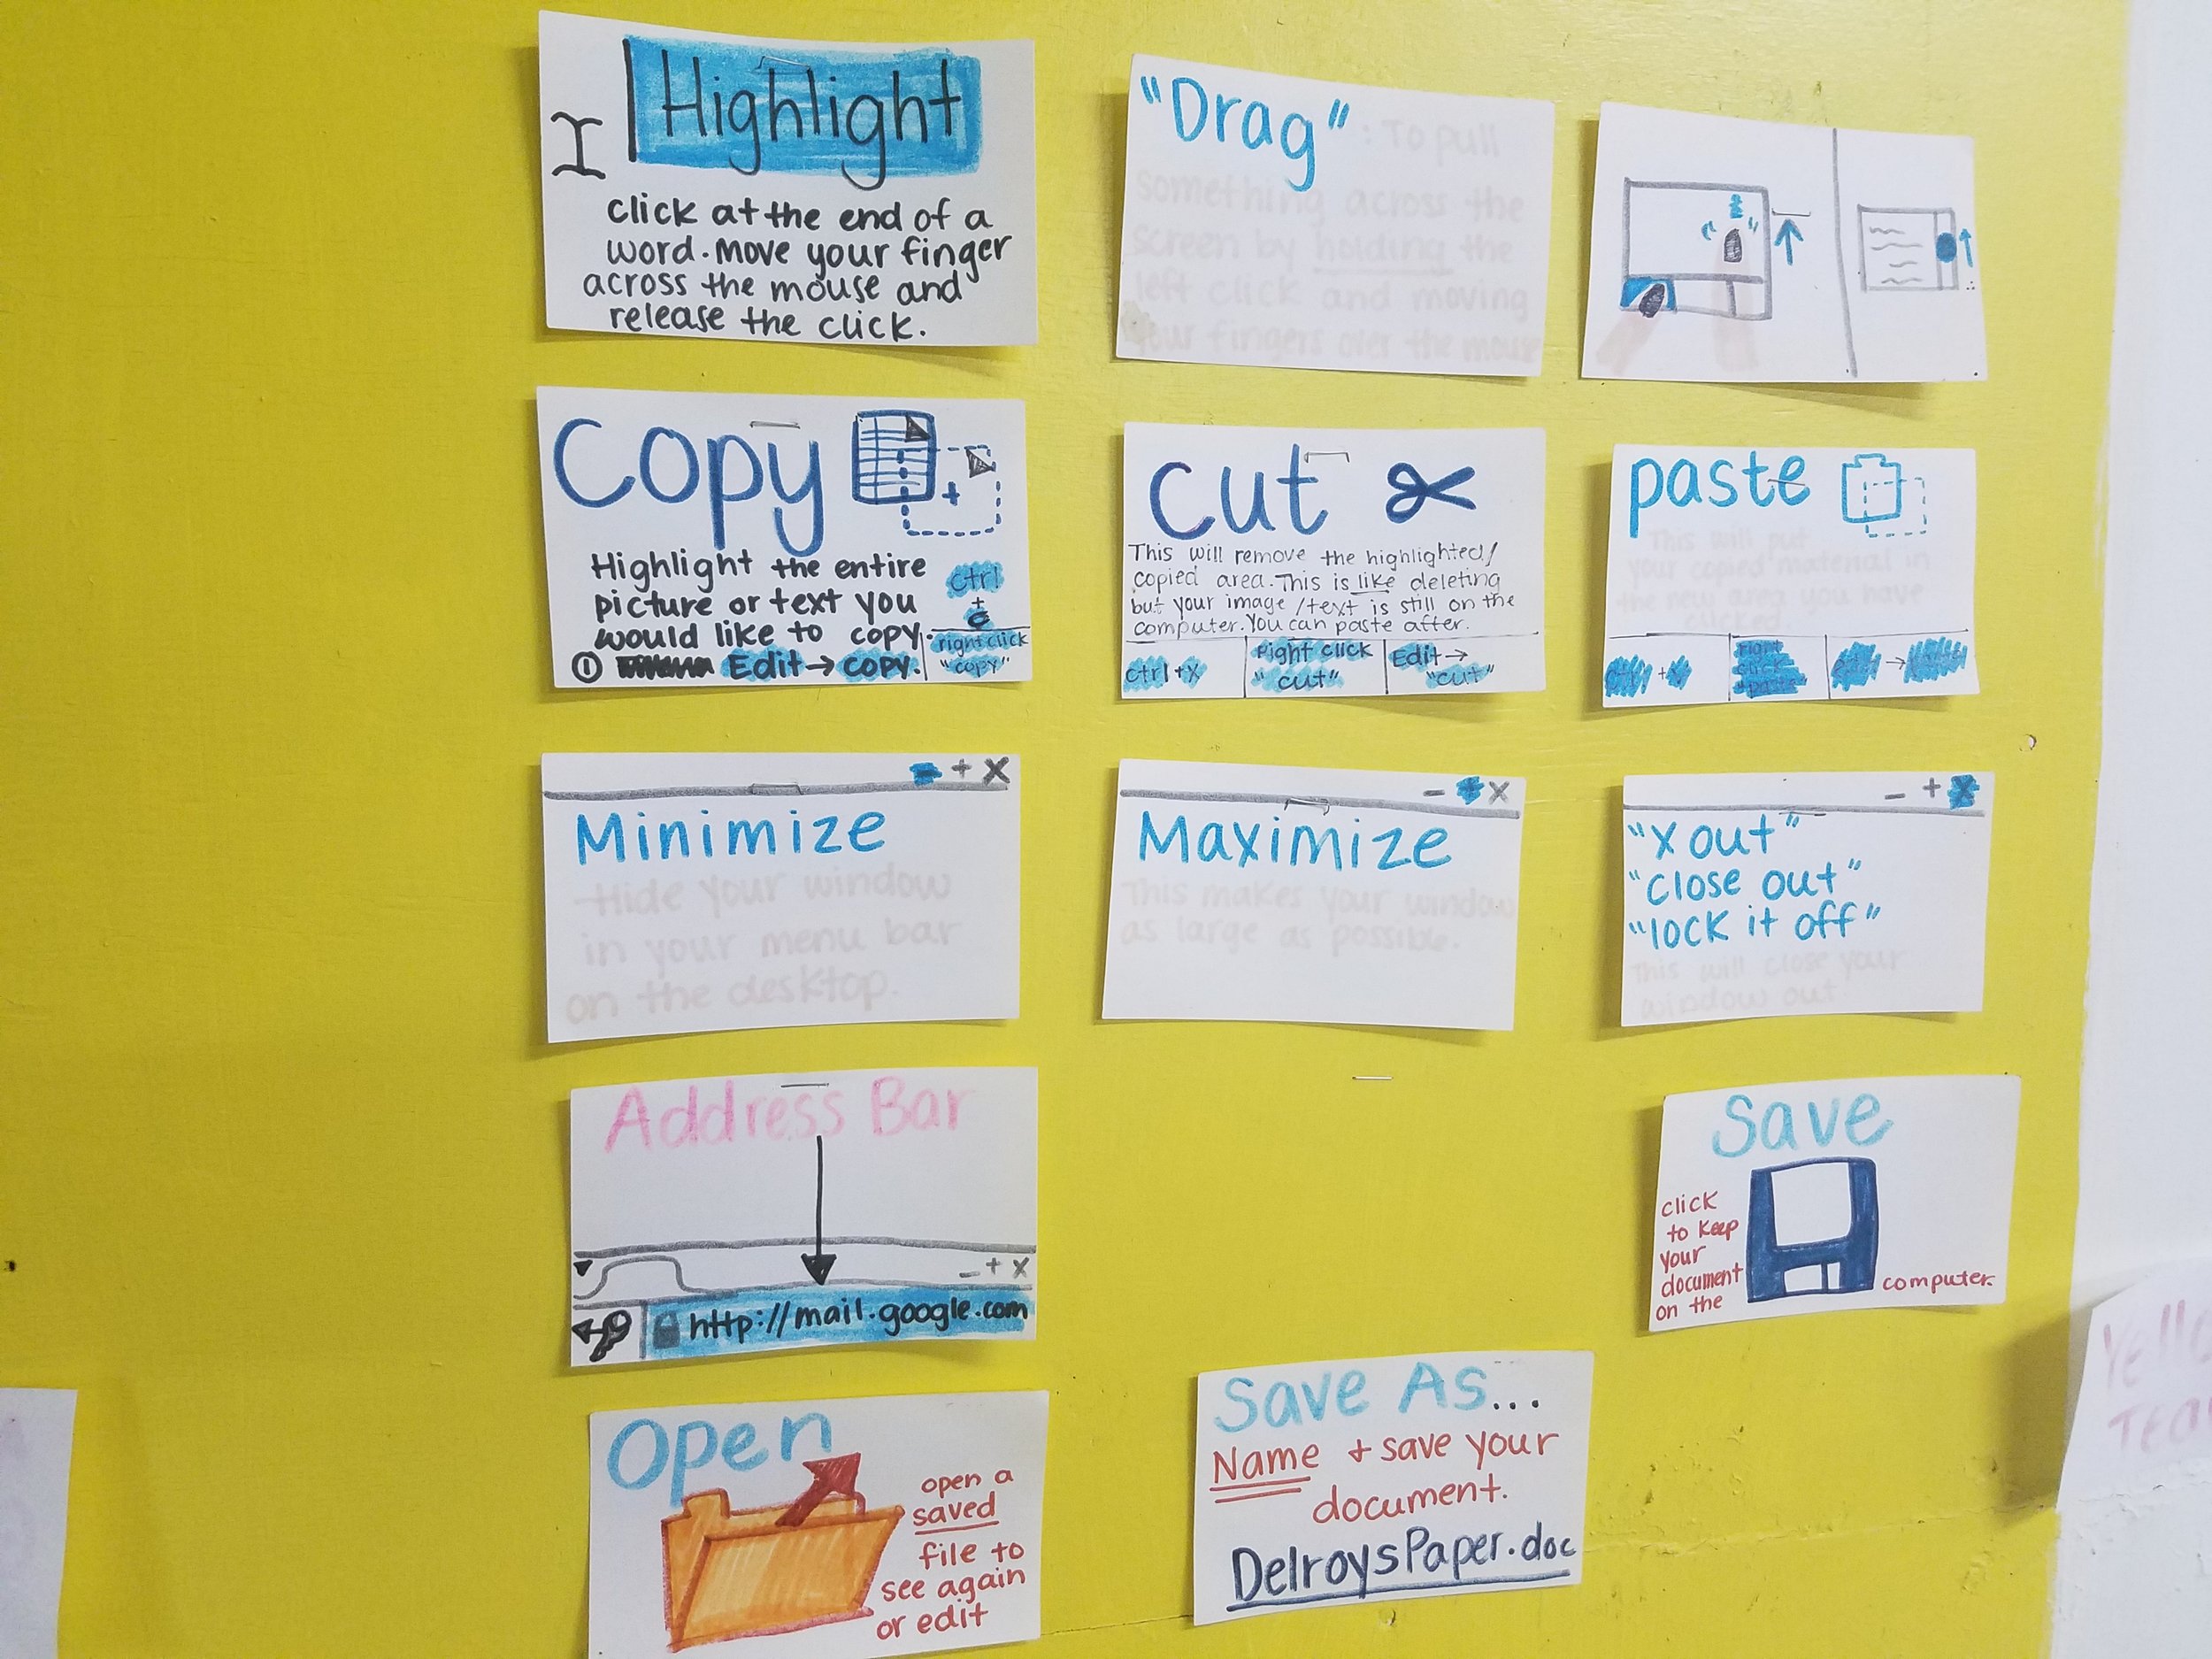 Highlight
click at the end of a
word. Move your finger
across the mouse and
release the click.
"Drag" : To pull
something across the
screen by holding the
left click and moving
your fingers over the mouse
Copy
Highlight the entire
picture or text you
would like to copy.
① Edit → copy.
ctrl
+
c
right click
"copy"
cut
This will remove the highlighted/
copied area. This is like deleting
but your image/text is still on the
computer. You can paste after.
ctrl+x
Right click
"cut"
Edit →
"cut"
paste
This will put
your copied material in
the new area you have
clicked.
right
click
"paste"
- + X
Minimize
Hide your window
in your menu bar
on the desktop.
- + X
Maximize
This makes your window
as large as possible.
- + X
"X out"
"close out"
"lock it off"
This will close your
window out
Address Bar
- + X
http://mail.google.com
Save
click
to keep
your
document
on the
computer.
Open
open a
saved
file to
see again
or edit
Save As...
Name + save your
document.
DelroysPaper.doc